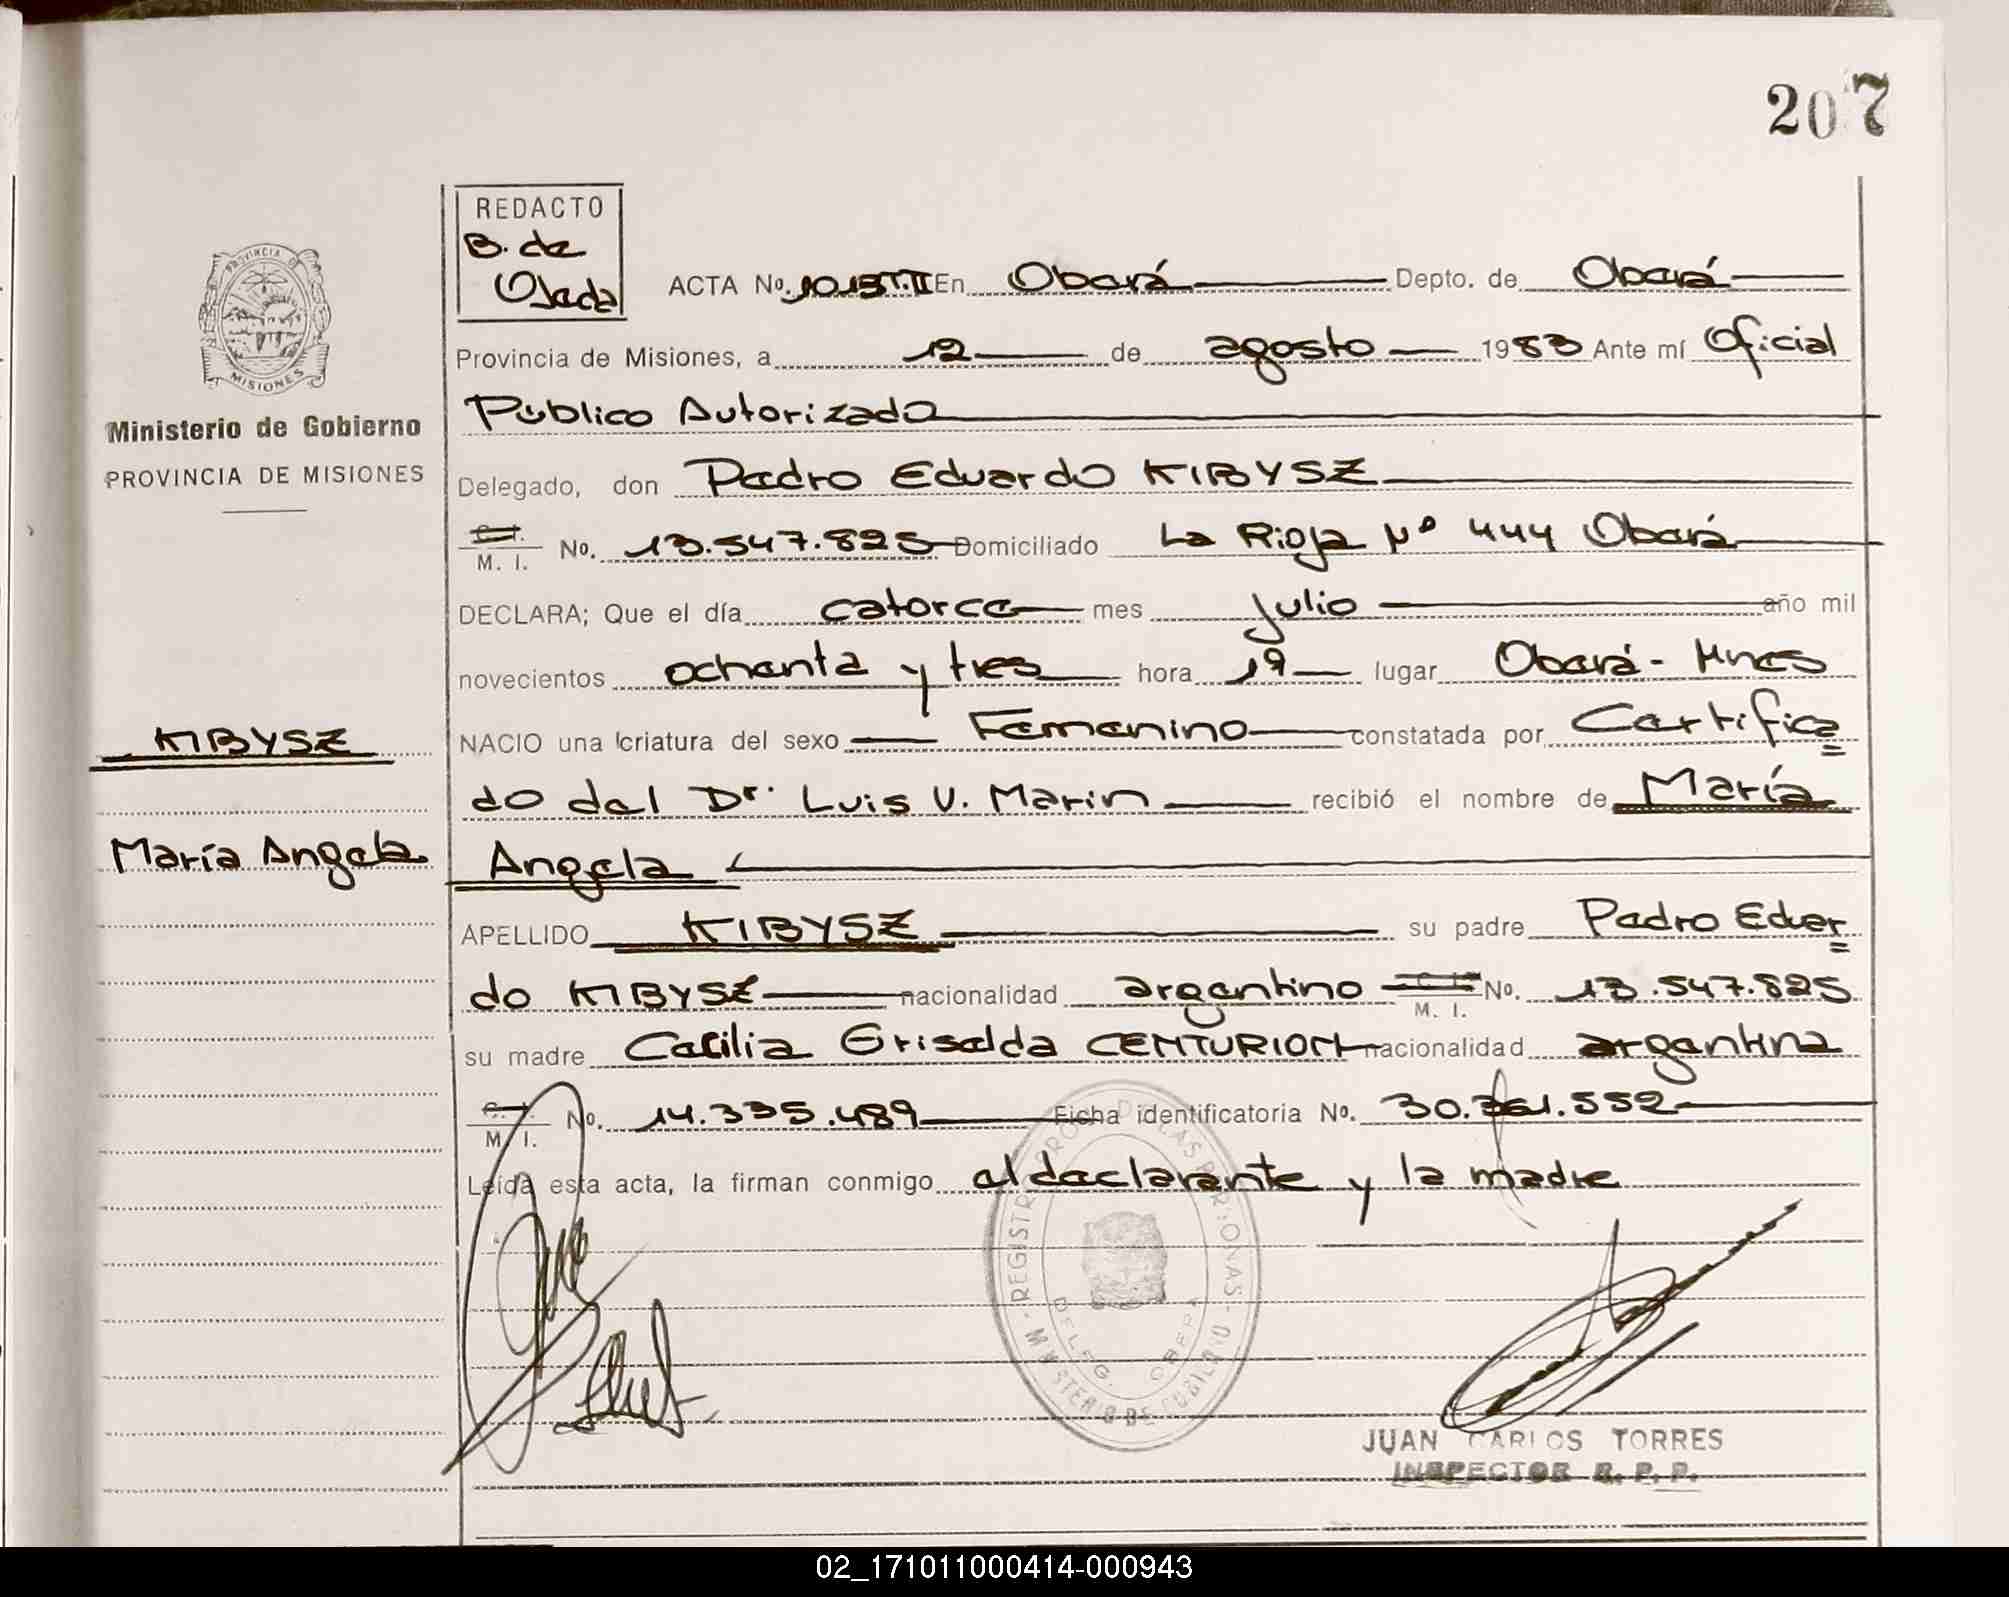 207
REDACTO
B. de
Ojeda
ACTA No. 1013T.II En Oberá Depto. de Oberá
Provincia de Misiones, a 12 de agosto 1983 Ante mí Oficial
Público Autorizado
Ministerio de Gobierno
PROVINCIA DE MISIONES
Delegado, don Pedro Eduardo KIBYSZ
C. I.
M. I. No. 13.547.825 Domiciliado La Rioja Nº 444 Oberá
DECLARA; Que el día catorce mes julio año mil
novecientos ochenta y tres hora 19 lugar Oberá - Mnes
KIBYSZ
NACIO una criatura del sexo Femenino constatada por Certifica
do del Dr. Luis V. Marin recibió el nombre de María
María Angela
Angela
APELLIDO KIBYSZ su padre Pedro Eduar
do KIBYSZ nacionalidad argentino C. I. M. I. No. 13.547.825
su madre Cecilia Griselda CENTURION nacionalidad argentina
M. I. No. 14.335.489 Ficha identificatoria No. 30.361.552
Leída esta acta, la firman conmigo el declarante y la madre
PROVINCIA DE
MISIONES
REGISTRO PROV. DE LAS PERSONAS
DELEG. OBERA
JUAN CARLOS TORRES
INSPECTOR R. P. P.
02_171011000414-000943